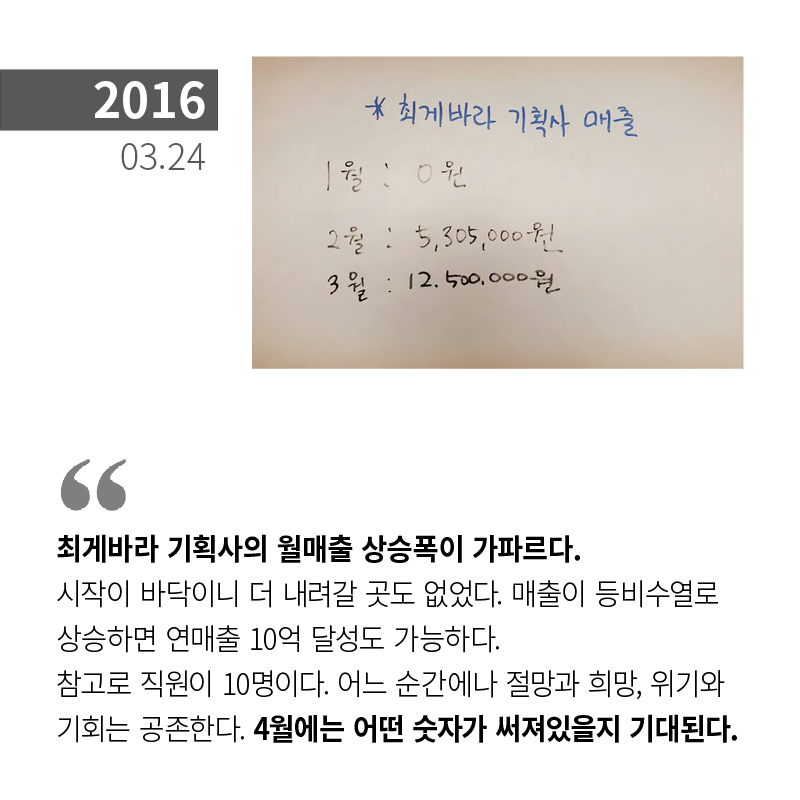 2016
03.24
* 최게바라 기획사 매출
1월 : 0원
2월 : 5,305,000원
3월 : 12.500.000원
“
최게바라 기획사의 월매출 상승폭이 가파르다.
시작이 바닥이니 더 내려갈 곳도 없었다. 매출이 등비수열로
상승하면 연매출 10억 달성도 가능하다.
참고로 직원이 10명이다. 어느 순간에나 절망과 희망, 위기와
기회는 공존한다. 4월에는 어떤 숫자가 써져있을지 기대된다.